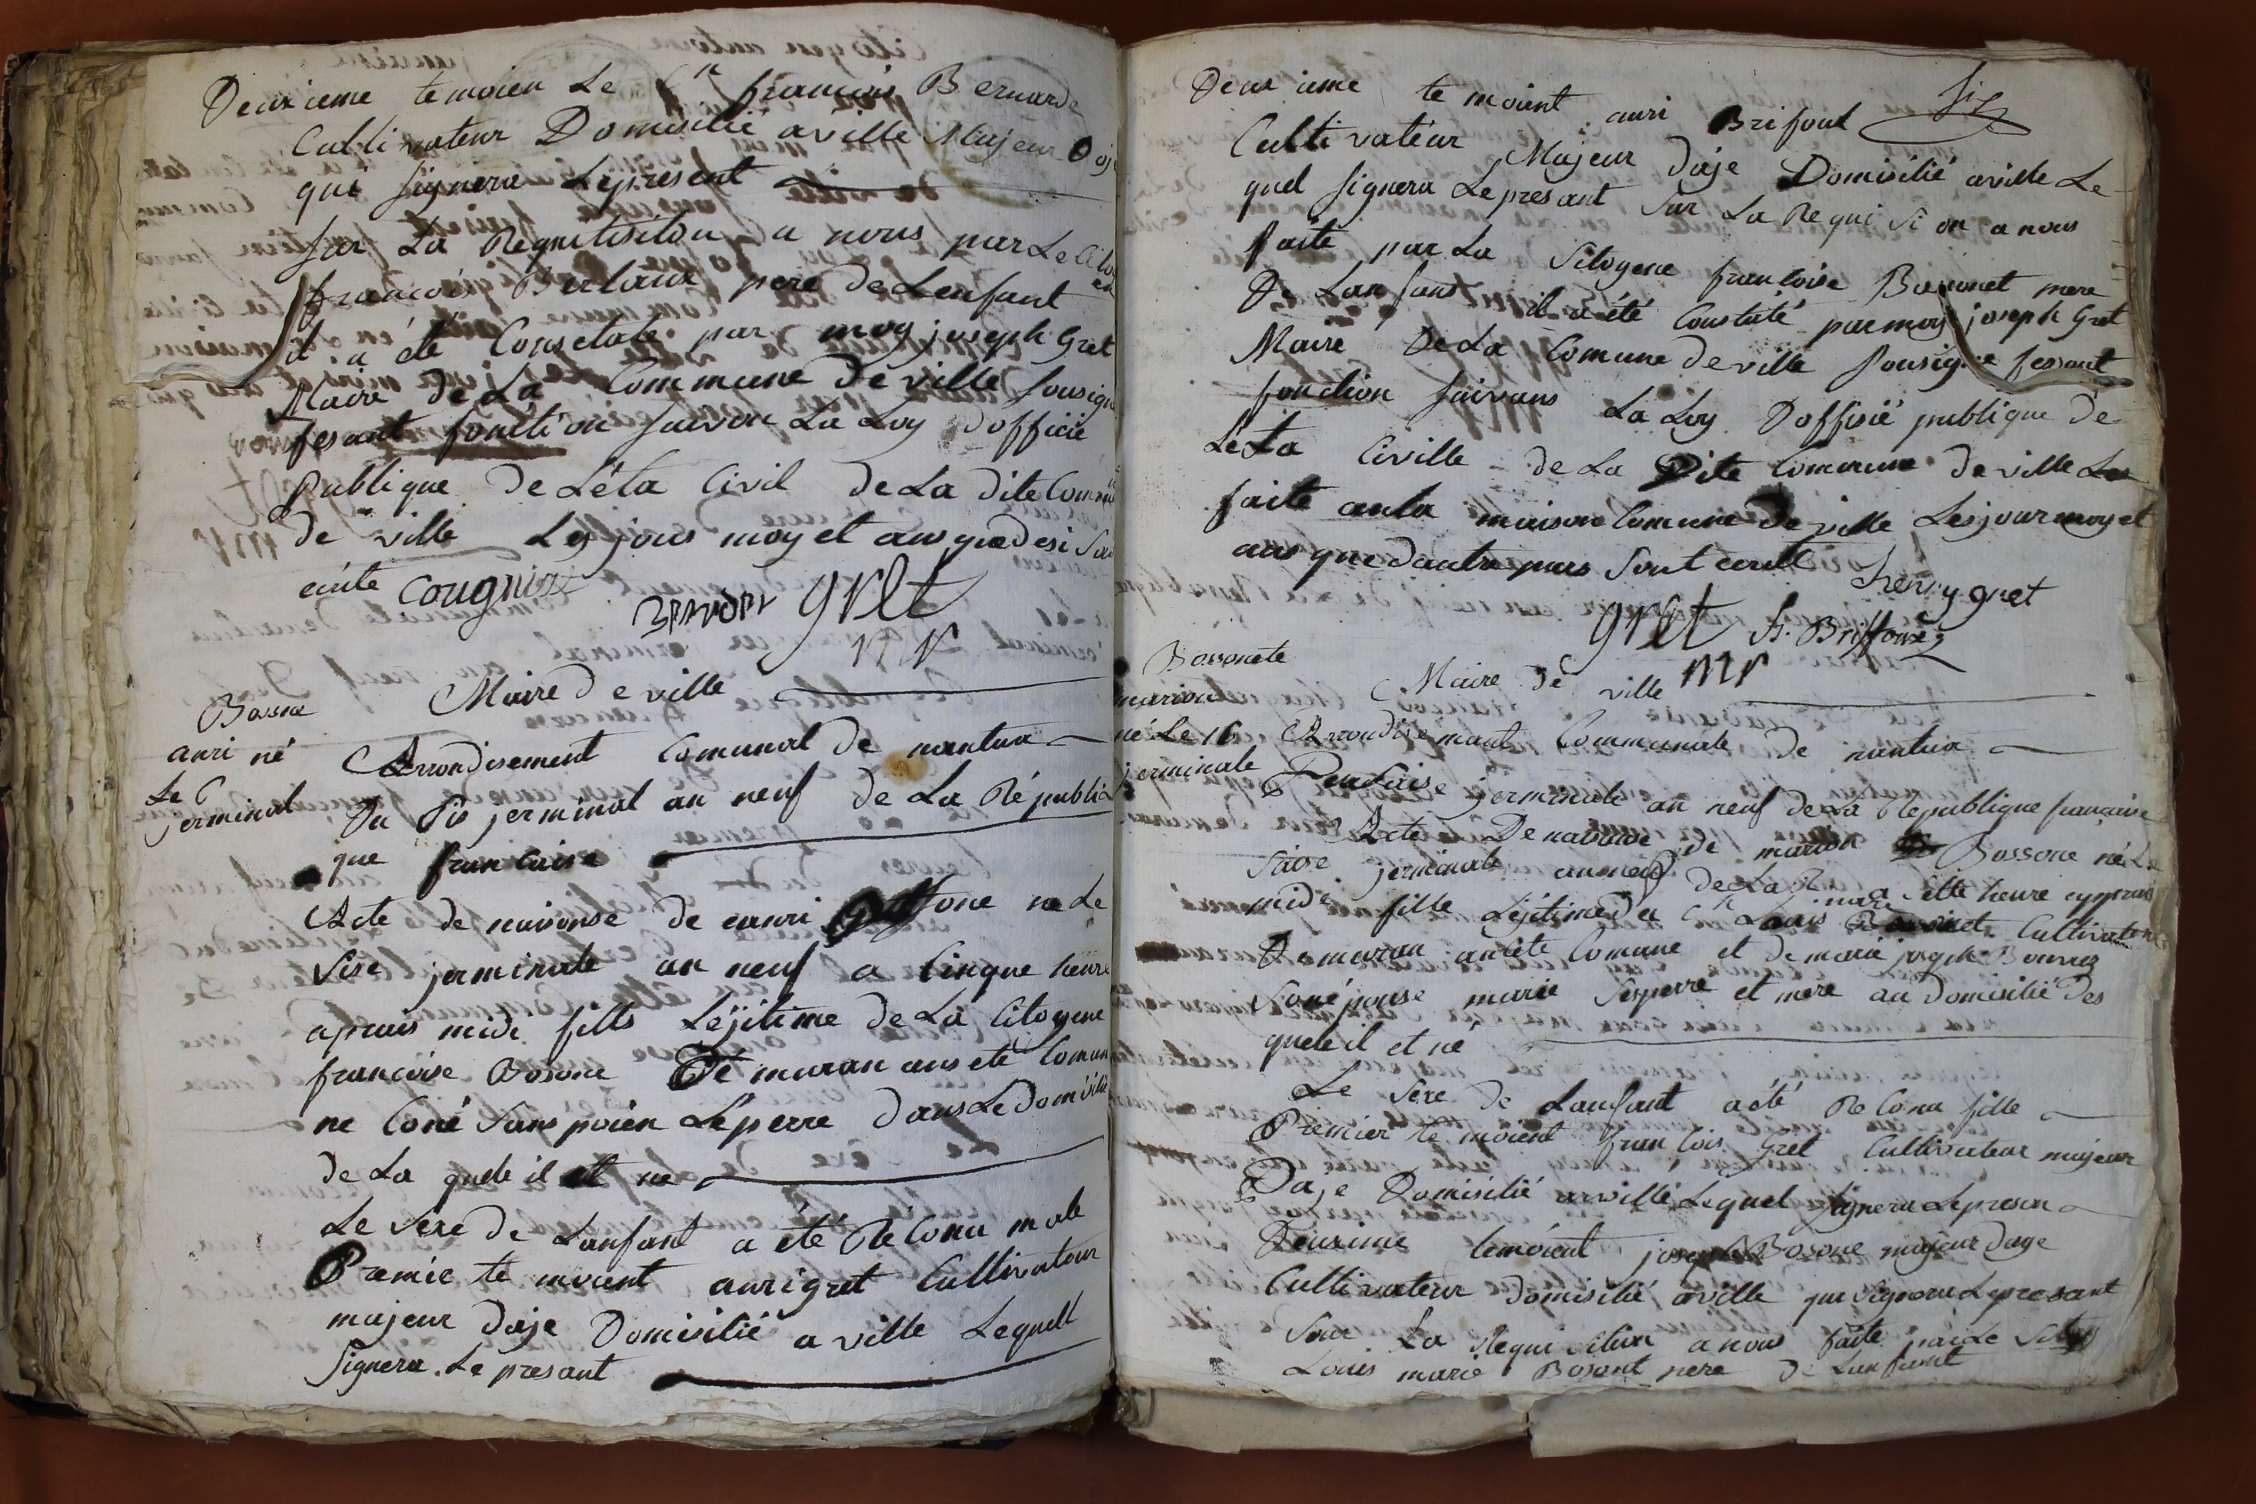 Deuxieme temoien Le Cn francois Bernarde
Cultivateur Domisilié a ville Majeur Daje
qui signera Lepresent
sur La Requitisitou a nous par Le Cito
francois Berlaux pere de Lenfant
il a été Consctate par moy joseph Gret
Maire de La Commune de ville sousigne
fesant fonction suivon La Loy doffice
Publique de Léta Civil de La dite Commune
de ville Les jous moy et ans que desi
ecrite Cougniox
Bernodr gret
mr
Bossne
auri né
Le 6
jerminal
Maire de ville
Arrondisement Comunal de nantua
Du sis jerminal an neuf de La Républi
que francaise
Acte de naisonse de eanri Bossone ne Le
Sise jerminale an neuf a Cinque heure
aprais midi fills Lejitime de La Citoyene
francoise Bosone De muran ans ete Comun
ne Coné sans poien Léperre dans Le domisilie
de La quele il et ne
Le sexe de Lanfant a été Reconu male
Premie te moient auri gret Cultivateur
majeur daje Domisilié a ville Lequell
signera Le presant
Deuxieme te moient auri Brifout
Cultivateur Majeur daje Domisilié a ville Le
quel signera Le presant sur La Requi si on a nous
faite par La Sitogene francoise Bassonet mere
De Lanfans il a été Constaté par moy joseph Gret
Maire De La Comune de ville sousigne fessant
fonction suivans La Loy Doffisié publique de
Leta Civille de La Dite Commune de ville Les
faite anla maison Comune de ville Les jour moy et
ans que dautre pars sont ecrit
henry gret
gret h. Briffoux
mr
Bossonete
marion
né Le 16
jerminale
Maire de ville
Arrondisemant Communale de nantua
Du saise jerminale an neuf de La Republique francaise
Acte De naisonse de marion Bossone né Le
saise jerminale an neuf de La R a sette heure apprais
midi fille Lejitime du Cn Louis marie Bossonet Cultivateur
Demuran ansete Comune et de marie joseph Bouvrez
son épouse marie Sesperre et mere au domisilié des
quele il et né
Le sexe de Lanfant a été Reconu fille
Premier te moient francois Gret Cultivateur majeur
Daje Domisilié a ville Lequel signera Le presan
Deuxieme temoient joseph Bosone majeur dage
Cultivateur domisilié a ville qui signera Le presant
sur La Requisition a nous faite par Le Sitoy
Louis marie Bosont pere de Lanfant